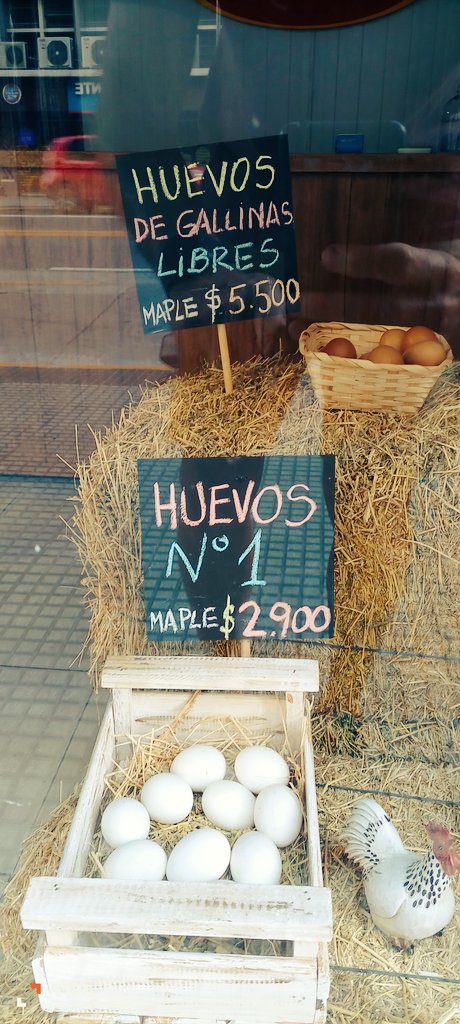 HUEVOS
DE GALLINAS
LIBRES
MAPLE $5.500
HUEVOS
N°1
MAPLE $2.900